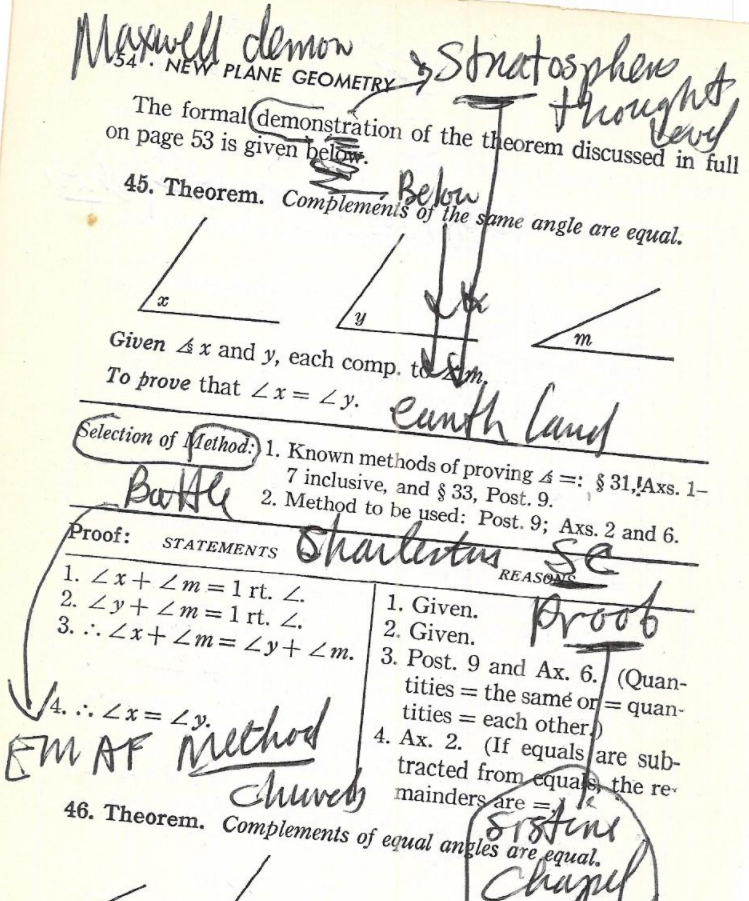 Maxwell demon
54 · NEW PLANE GEOMETRY
Stratosphere
thought
level
The formal demonstration of the theorem discussed in full
on page 53 is given below.
Below
45. Theorem. Complements of the same angle are equal.
x
y
m
Given ∡s x and y, each comp. to ∠m.
To prove that ∠x = ∠y.
earth land
Selection of Method: 1. Known methods of proving ∡s =: § 31, Axs. 1–
7 inclusive, and § 33, Post. 9.
2. Method to be used: Post. 9; Axs. 2 and 6.
Battle
Proof: STATEMENTS
REASONS
SC
1. ∠x + ∠m = 1 rt. ∠.
2. ∠y + ∠m = 1 rt. ∠.
3. ∴ ∠x + ∠m = ∠y + ∠m.
4. ∴ ∠x = ∠y.
Proof
1. Given.
2. Given.
3. Post. 9 and Ax. 6. (Quan-
tities = the same or = quan-
tities = each other.)
4. Ax. 2. (If equals are sub-
tracted from equals, the re-
mainders are =.)
EMAF Method
Church
Sistine
Chapel
46. Theorem. Complements of equal angles are equal.